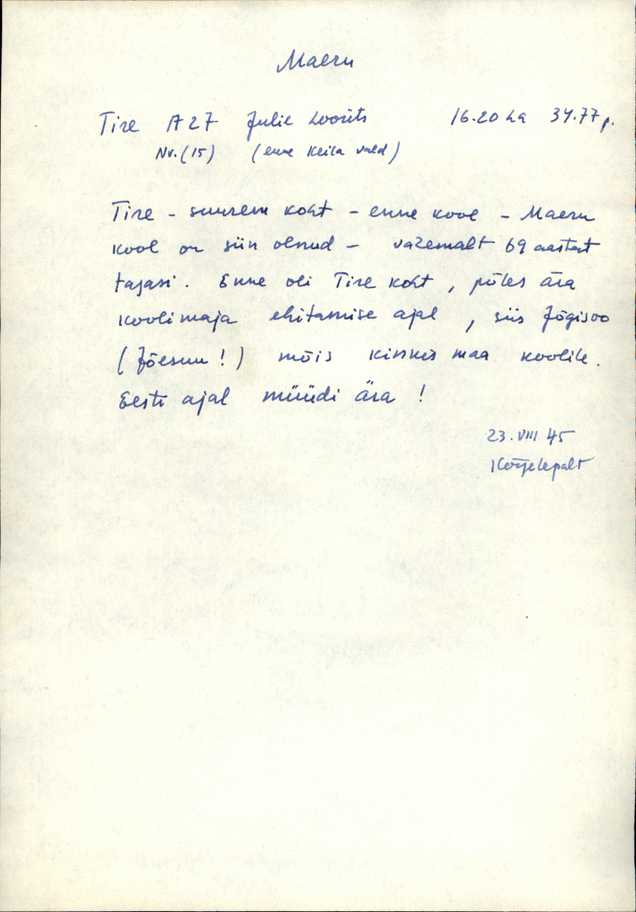 Maeru
Tire A27 Julie Loorits 16.20 ha 34.77 p.
Nr.(15) (enne Keila vald)
Tire - suurem koht - enne kool - Maeru
kool on siin olnud - vazemalt 69 aastat
tagasi. Enne oli Tire koht, põles ära
koolimaja ehitamise ajal, siis Jõgisoo
(Jõesuu!) mõis kinkis maa koolile.
Eesti ajal müüdi ära!
23.VIII 45